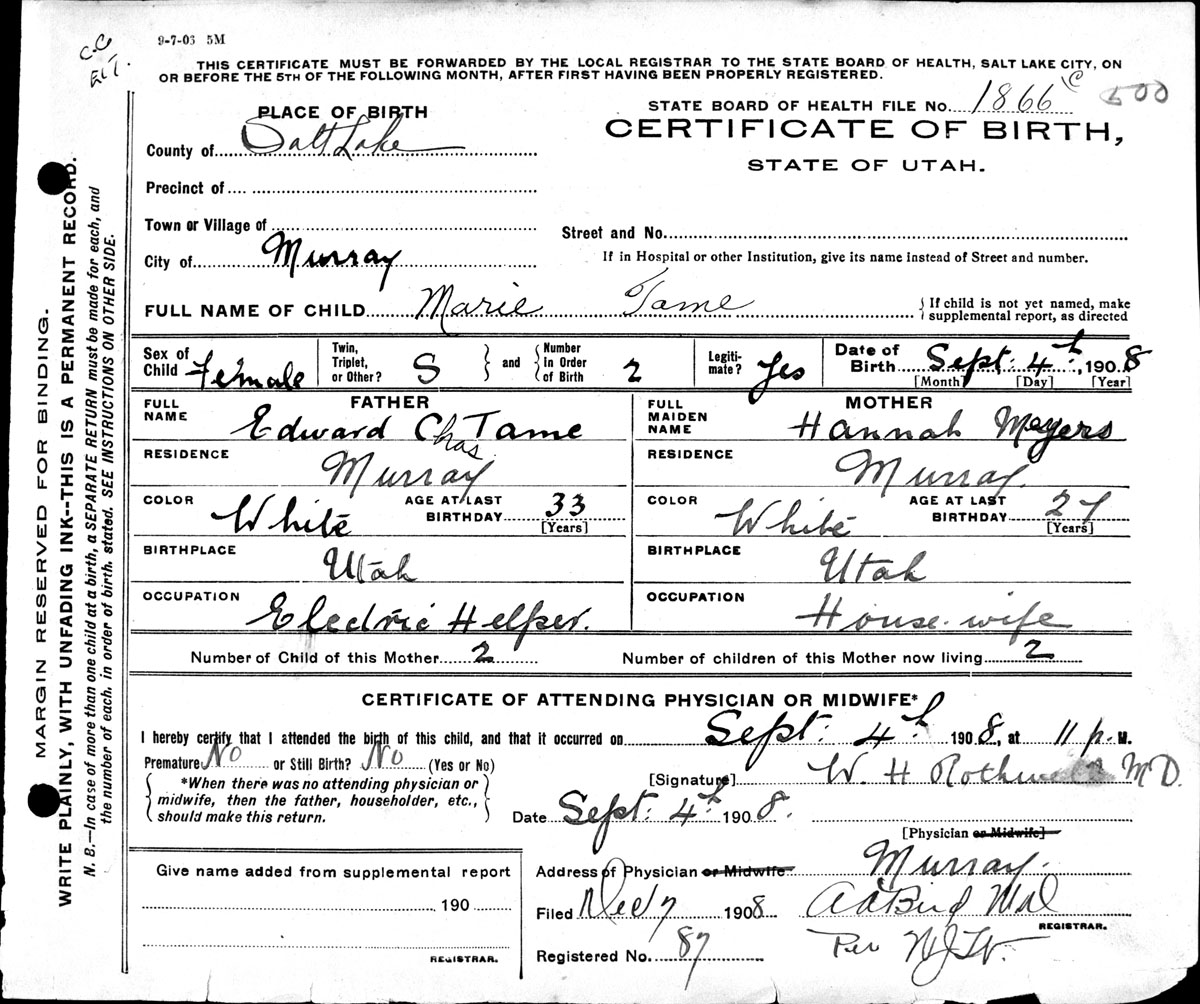 C.C.
9-7-03 5M
THIS CERTIFICATE MUST BE FORWARDED BY THE LOCAL REGISTRAR TO THE STATE BOARD OF HEALTH, SALT LAKE CITY, ON
OR BEFORE THE 5TH OF THE FOLLOWING MONTH, AFTER FIRST HAVING BEEN PROPERLY REGISTERED.
PLACE OF BIRTH
STATE BOARD OF HEALTH FILE No. 1866 c 500
CERTIFICATE OF BIRTH,
STATE OF UTAH.
County of Salt Lake
Precinct of
Town or Village of
Street and No.
City of Murray
If in Hospital or other Institution, give its name instead of Street and number.
FULL NAME OF CHILD Marie Tame { If child is not yet named, make
supplemental report, as directed
Sex of Child Female
Twin, Triplet, or Other? S } and { Number In Order of Birth 2
Legiti-mate? Yes
Date of Birth Sept. 4th, 1908
[Month] [Day] [Year]
FATHER
FULL NAME Edward Chas Tame
RESIDENCE Murray
COLOR White AGE AT LAST BIRTHDAY 33
[Years]
BIRTHPLACE Utah
OCCUPATION Electric Helper.
MOTHER
FULL MAIDEN NAME Hannah Meyers
RESIDENCE Murray
COLOR White AGE AT LAST BIRTHDAY 27
[Years]
BIRTHPLACE Utah
OCCUPATION House-wife
Number of Child of this Mother 2 Number of children of this Mother now living 2
CERTIFICATE OF ATTENDING PHYSICIAN OR MIDWIFE*
I hereby certify that I attended the birth of this child, and that it occurred on Sept. 4th, 1908, at 11 p. M.
Premature No or Still Birth? No (Yes or No)
{ *When there was no attending physician or
midwife, then the father, householder, etc.,
should make this return. }
[Signature] W. H. Rothwell MD.
Date Sept. 4th 1908.
[Physician or Midwife]
Address of Physician or Midwife Murray.
Filed Dec 7 1908 MD
REGISTRAR.
Registered No. 87 Per
Give name added from supplemental report
190
REGISTRAR.
MARGIN RESERVED FOR BINDING.
WRITE PLAINLY, WITH UNFADING INK--THIS IS A PERMANENT RECORD.
N. B.--In case of more than one child at a birth, a SEPARATE RETURN must be made for each, and
the number of each, in order of birth, stated. SEE INSTRUCTIONS ON OTHER SIDE.